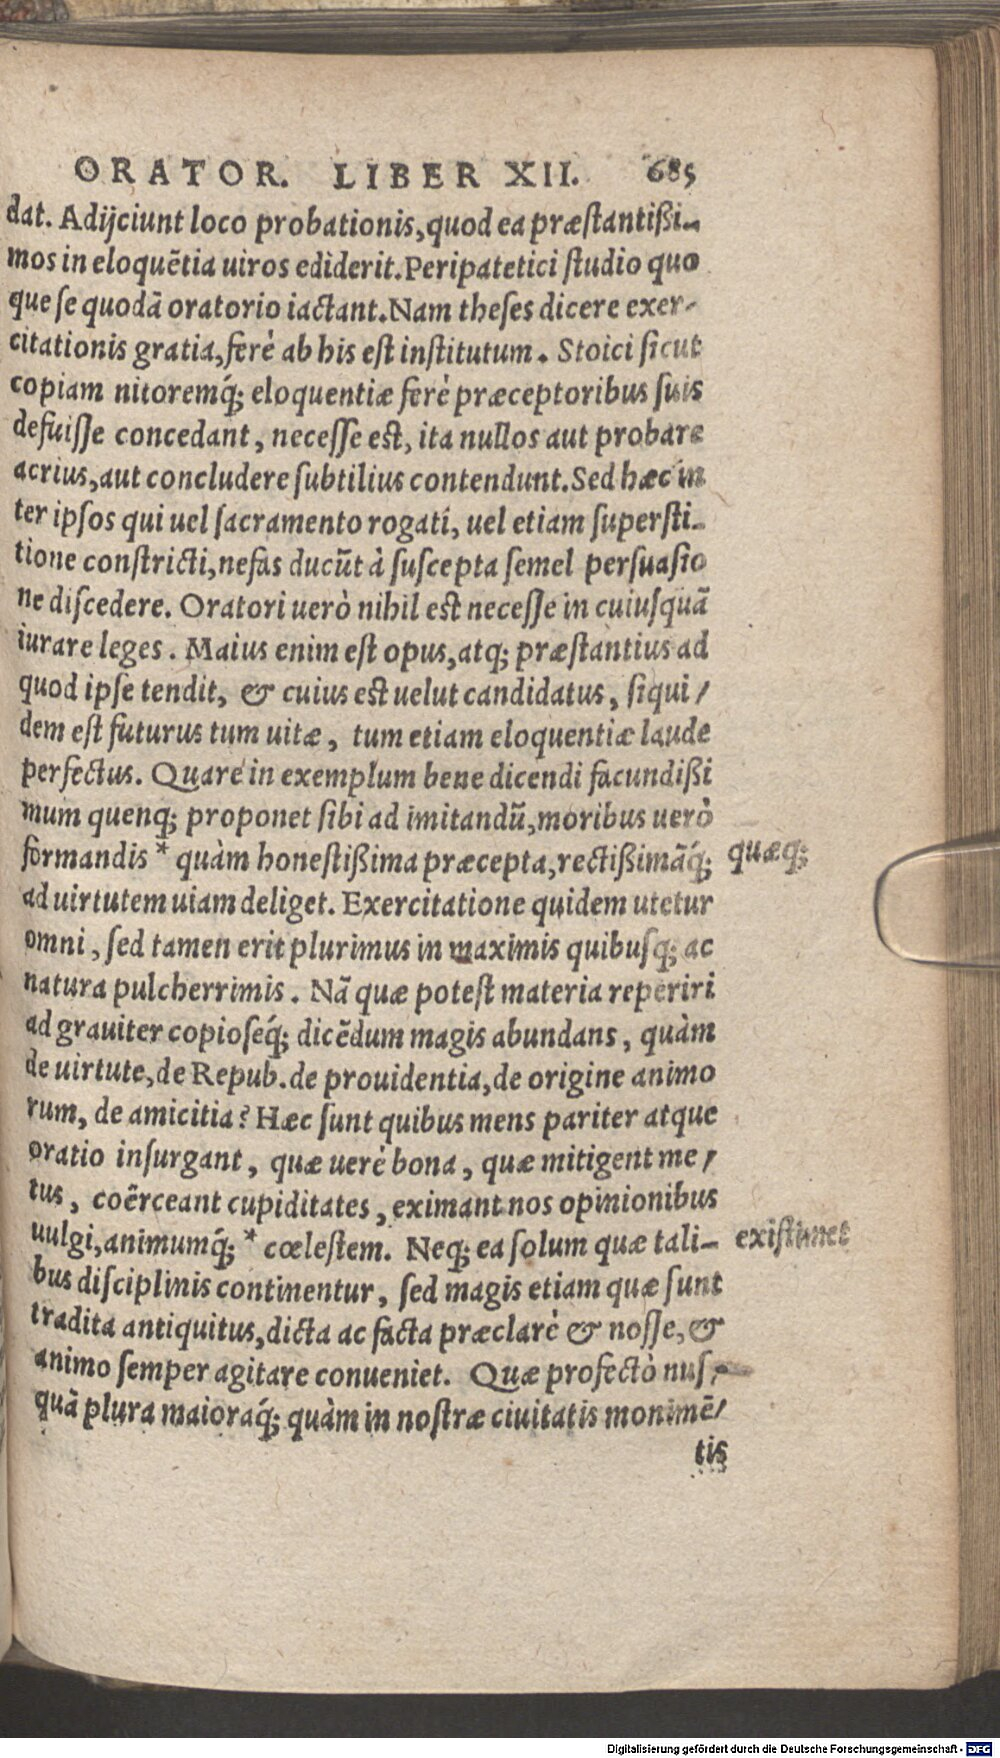 ORATOR. LIBER XII. 685
dat. Adijciunt loco probationis, quod ea præstantißi-
mos in eloquẽtia uiros ediderit. Peripatetici studio quo
que se quodã oratorio iactant. Nam theses dicere exer-
citationis gratia, ferè ab his est institutum. Stoici sicut
copiam nitoremq́; eloquentiæ ferè præceptoribus suis
defuisse concedant, necesse est, ita nullos aut probare
acrius, aut concludere subtilius contendunt. Sed hæc in
ter ipsos qui uel sacramento rogati, uel etiam supersti-
tione constricti, nefas ducũt à suscepta semel persuasio
ne discedere. Oratori uerò nihil est necesse in cuiusquã
iurare leges. Maius enim est opus, atq; præstantius ad
quod ipse tendit, & cuius est uelut candidatus, siqui/
dem est futurus tum uitæ, tum etiam eloquentiæ laude
perfectus. Quare in exemplum bene dicendi facundißi
mum quenq; proponet sibi ad imitandũ, moribus uerò
formandis * quàm honestißima præcepta, rectißimãq́; quæq;
ad uirtutem uiam deliget. Exercitatione quidem utetur
omni, sed tamen erit plurimus in maximis quibusq; ac
natura pulcherrimis. Nã quæ potest materia reperiri
ad grauiter copioseq́; dicẽdum magis abundans, quàm
de uirtute, de Repub. de prouidentia, de origine animo
rum, de amicitia? Hæc sunt quibus mens pariter atque
oratio insurgant, quæ uerè bona, quæ mitigent me/
tus, coẽrceant cupiditates, eximant nos opinionibus
uulgi, animumq́; * cœlestem. Neq; ea solum quæ tali- existimet
bus disciplinis continentur, sed magis etiam quæ sunt
tradita antiquitus, dicta ac facta præclarè & nosse, &
animo semper agitare conueniet. Quæ profectò nus/
quã plura maioraq́; quàm in nostræ ciuitatis monimẽ/
tis
Digitalisierung gefördert durch die Deutsche Forschungsgemeinschaft - DFG